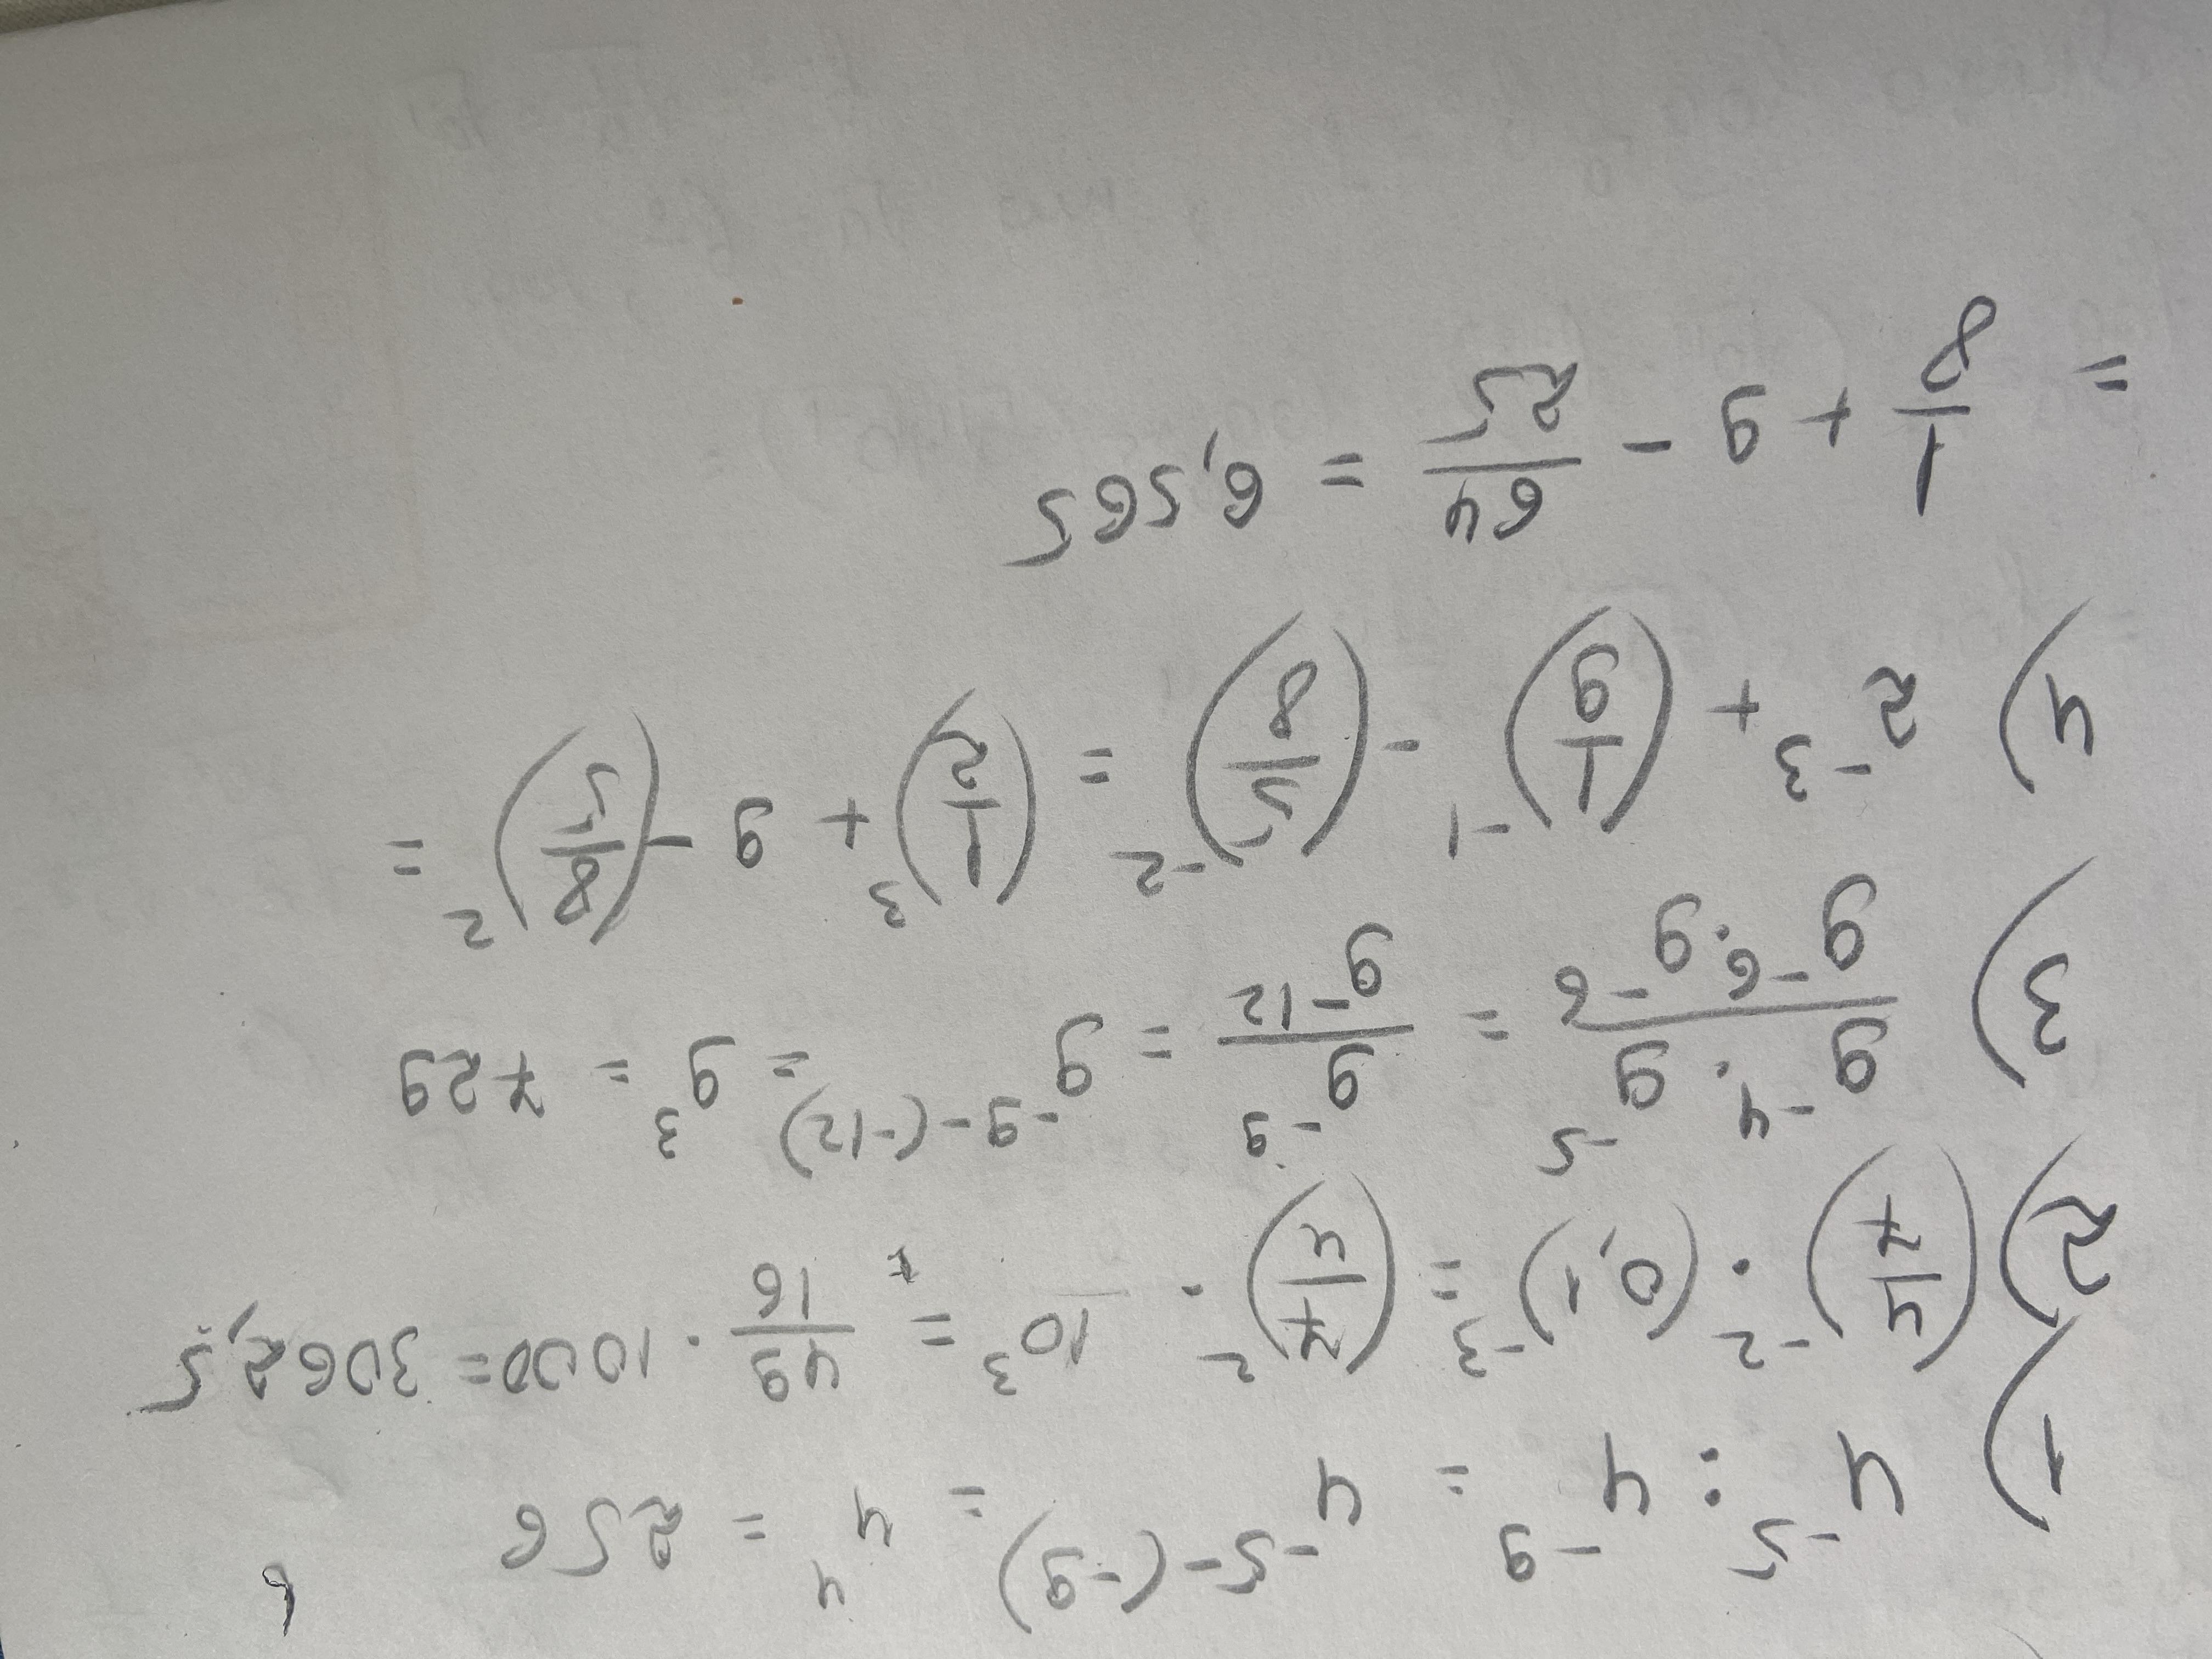 1) 4^-5 : 4^-9 = 4^-5-(-9) = 4^4 = 256
2) (4/7)^-2 · (0,1)^-3 = (7/4)^2 · 10^3 = 49/16 · 1000 = 3062,5
3) 9^-4 · 9^-5 / 9^-6 · 9^-6 = 9^-9 / 9^-12 = 9^-9-(-12) = 9^3 = 729
4) 2^-3 + (1/9)^-1 - (5/8)^-2 = (1/2)^3 + 9 - (8/5)^2 =
= 1/8 + 9 - 64/25 = 6,565